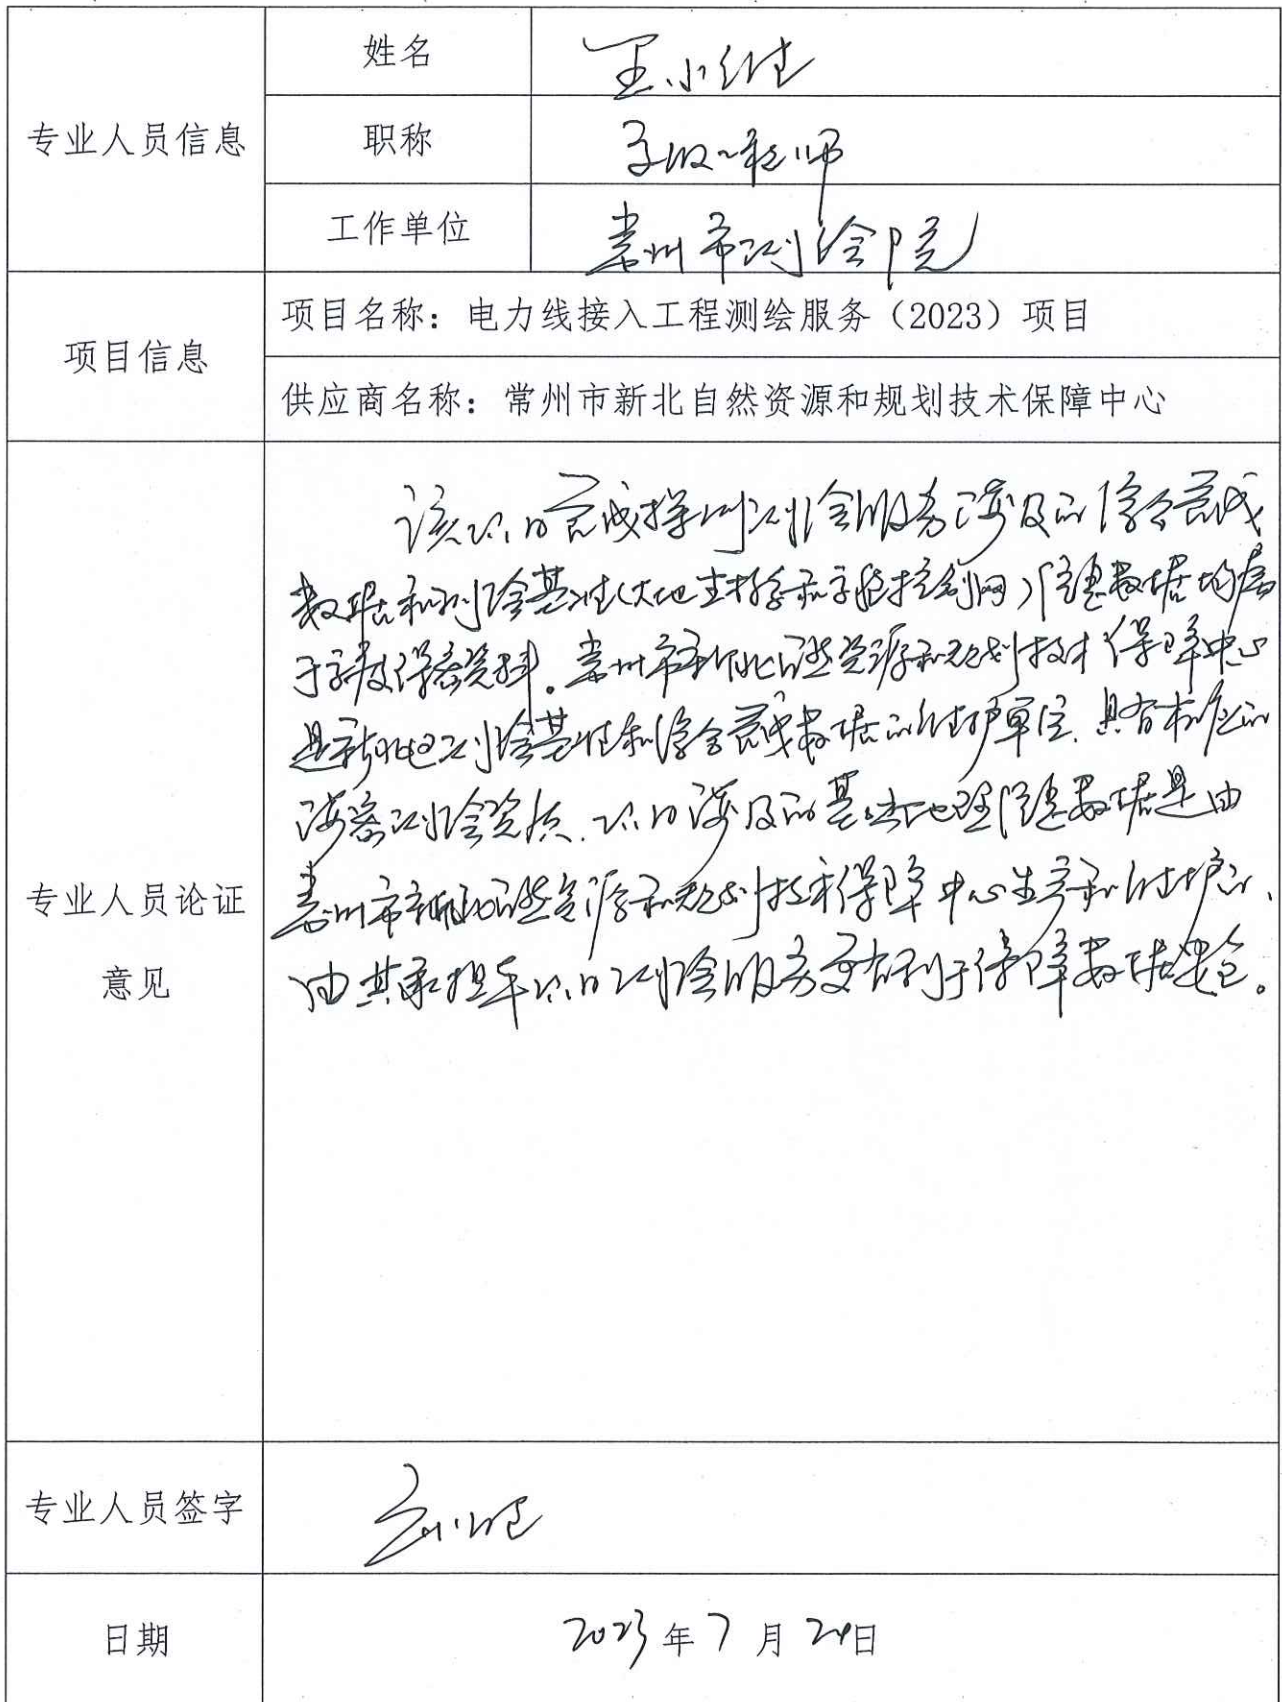 专业人员信息
姓名
王小维
职称
高级工程师
工作单位
常州市测绘院
项目信息
项目名称：电力线接入工程测绘服务（2023）项目
供应商名称：常州市新北自然资源和规划技术保障中心
专业人员论证
意见
该项目完成 测绘服务涉及的综合管线
数据和测绘基准（大地坐标系和高程控制网）信息数据均属
于涉及保密资料。常州市新北自然资源和规划技术保障中心
是新北区测绘基准和综合管线数据的维护单位，具有相应的
涉密测绘资质，项目涉及的基础地理信息数据是由
常州市新北自然资源和规划技术保障中心生产和维护的，
由其承担本项目测绘服务更有利于保障数据安全。
专业人员签字
王小维
日期
2023年7月24日